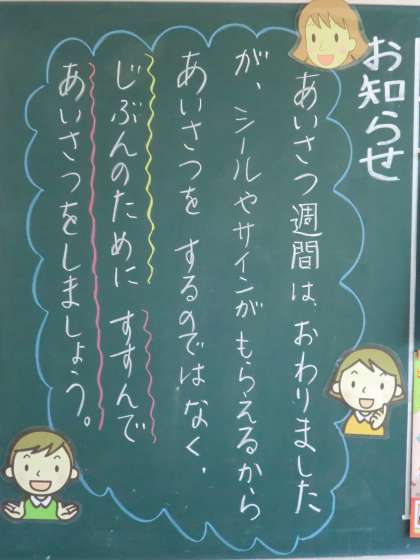 お知らせ
あいさつ週間は、おわりました
が、シールやサインがもらえるから
あいさつを するのではなく、
じぶんのために すすんで
あいさつをしましょう。